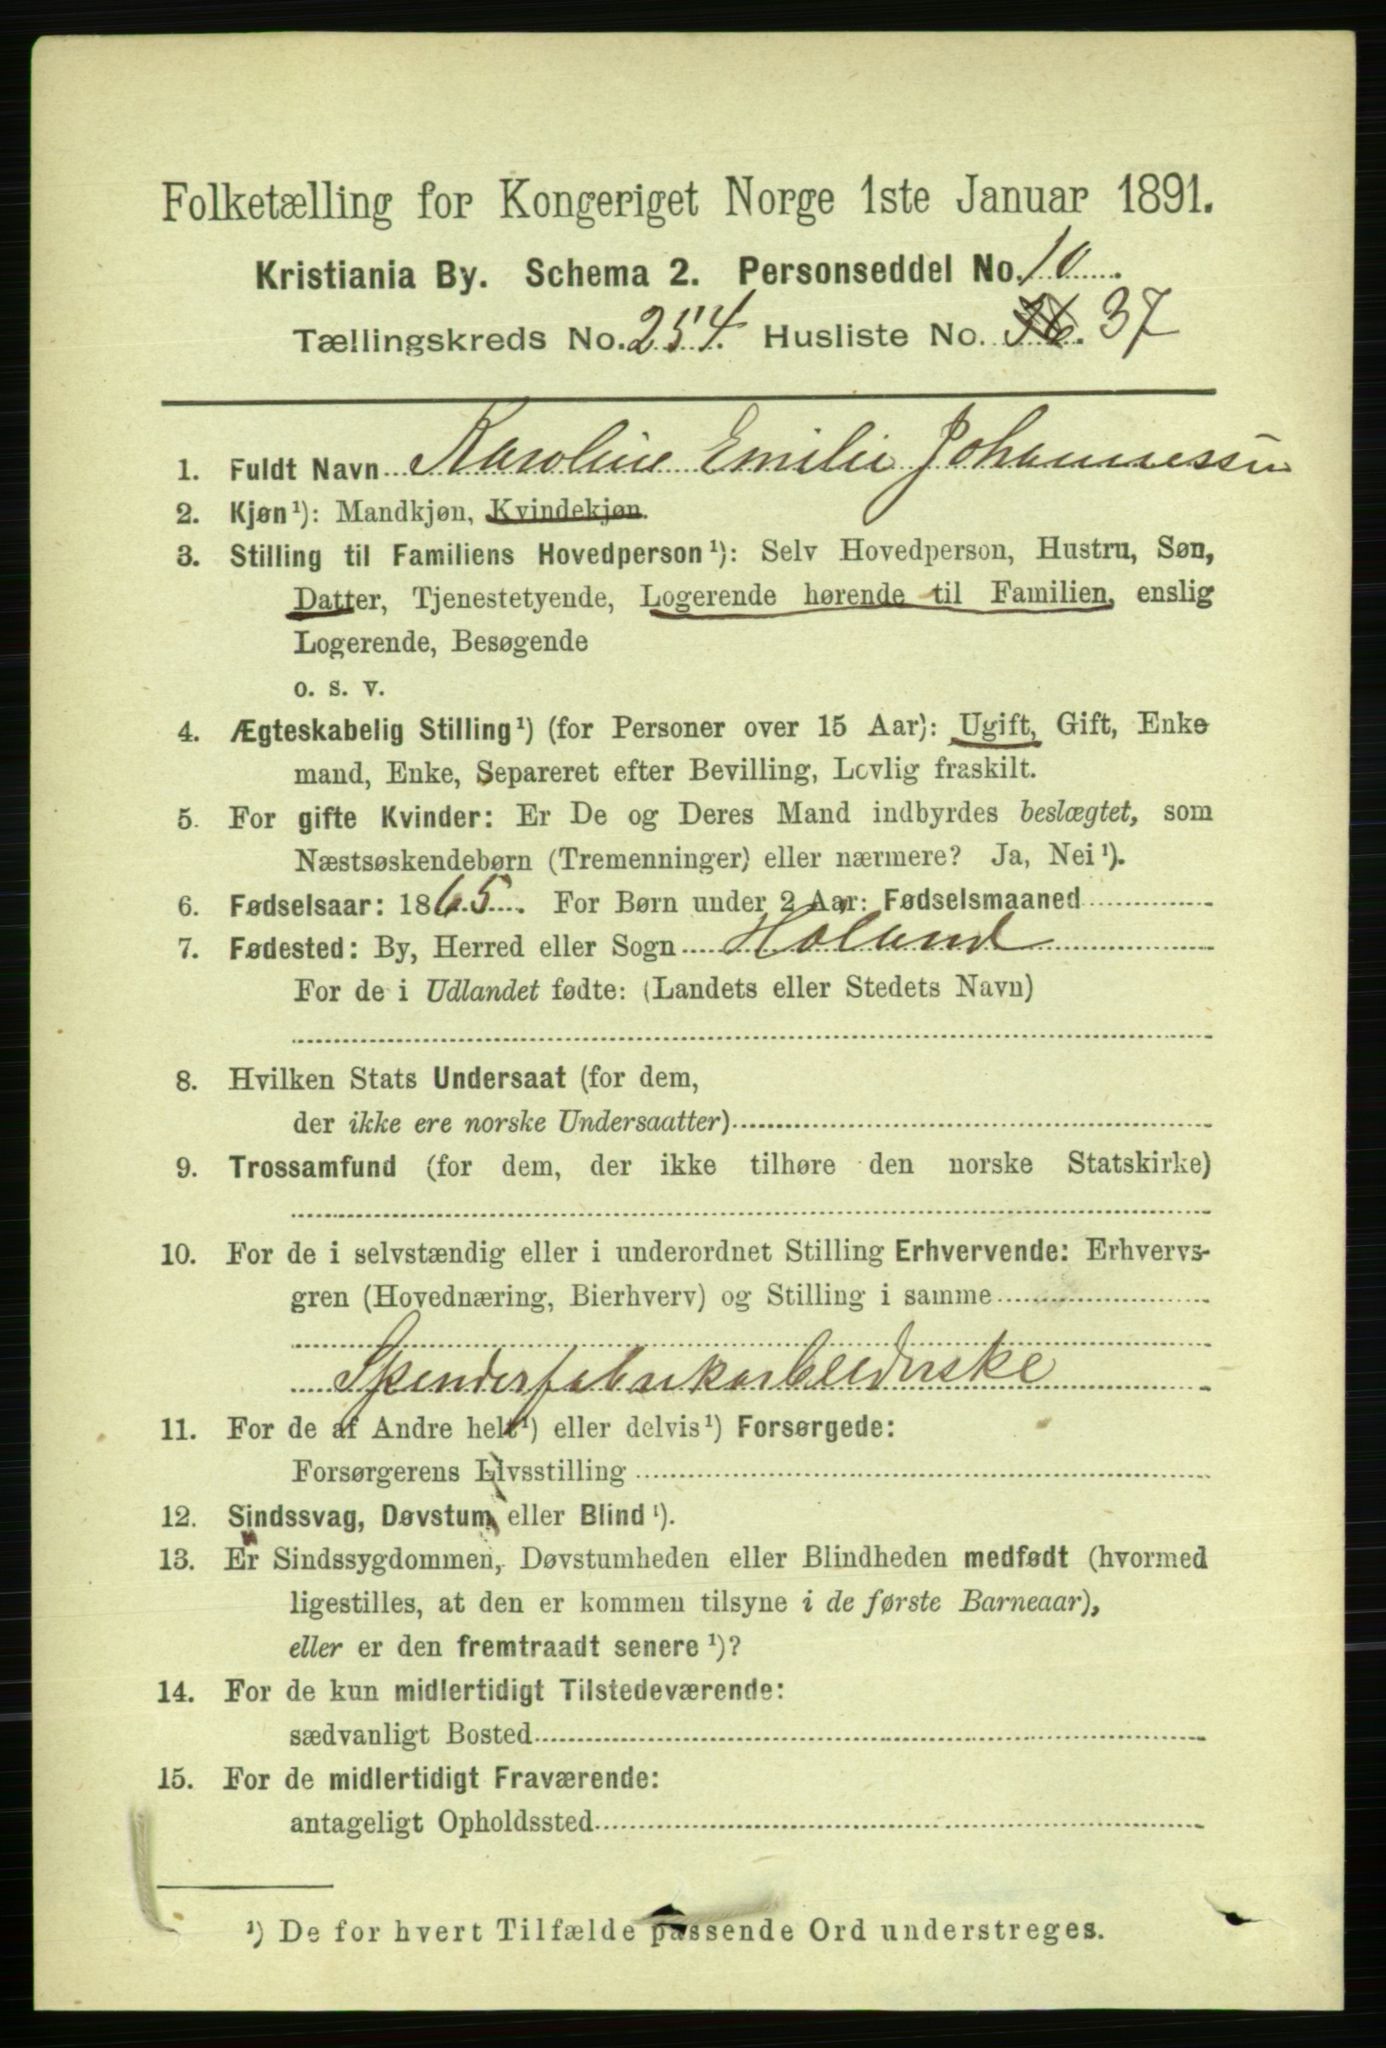 Folketælling for Kongeriget Norge 1ste Januar 1891.
Kristiania By. Schema 2. Personseddel No. 10
Tællingskreds No. 254 Husliste No. 36. 37
1. Fuldt Navn Karoline Emilie Johannessen
2. Kjøn¹): Mandkjøn, Kvindekjøn.
3. Stilling til Familiens Hovedperson¹): Selv Hovedperson, Hustru, Søn,
Datter, Tjenestetyende, Logerende hørende til Familien, enslig
Logerende, Besøgende
o. s. v.
4. Ægteskabelig Stilling¹) (for Personer over 15 Aar): Ugift, Gift, Enke
mand, Enke, Separeret efter Bevilling, Lovlig fraskilt.
5. For gifte Kvinder: Er De og Deres Mand indbyrdes beslægtet, som
Næstsøskendebørn (Tremenninger) eller nærmere? Ja, Nei¹).
6. Fødselsaar: 1865. For Børn under 2 Aar: Fødselsmaaned
7. Fødested: By, Herred eller Sogn Høland
For de i Udlandet fødte: (Landets eller Stedets Navn)
8. Hvilken Stats Undersaat (for dem,
der ikke ere norske Undersaatter)
9. Trossamfund (for dem, der ikke tilhøre den norske Statskirke)
10. For de i selvstændig eller i underordnet Stilling Erhvervende: Erhvervs-
gren (Hovednæring, Bierhverv) og Stilling i samme
Spenderfabrikarbeiderske
11. For de af Andre helt¹) eller delvis¹) Forsørgede:
Forsørgerens Livsstilling
12. Sindssvag, Døvstum eller Blind¹).
13. Er Sindssygdommen, Døvstumheden eller Blindheden medfødt (hvormed
ligestilles, at den er kommen tilsyne i de første Barneaar),
eller er den fremtraadt senere¹)?
14. For de kun midlertidigt Tilstedeværende:
sædvanligt Bosted
15. For de midlertidigt Fraværende:
antageligt Opholdssted
¹) De for hvert Tilfælde passende Ord understreges.